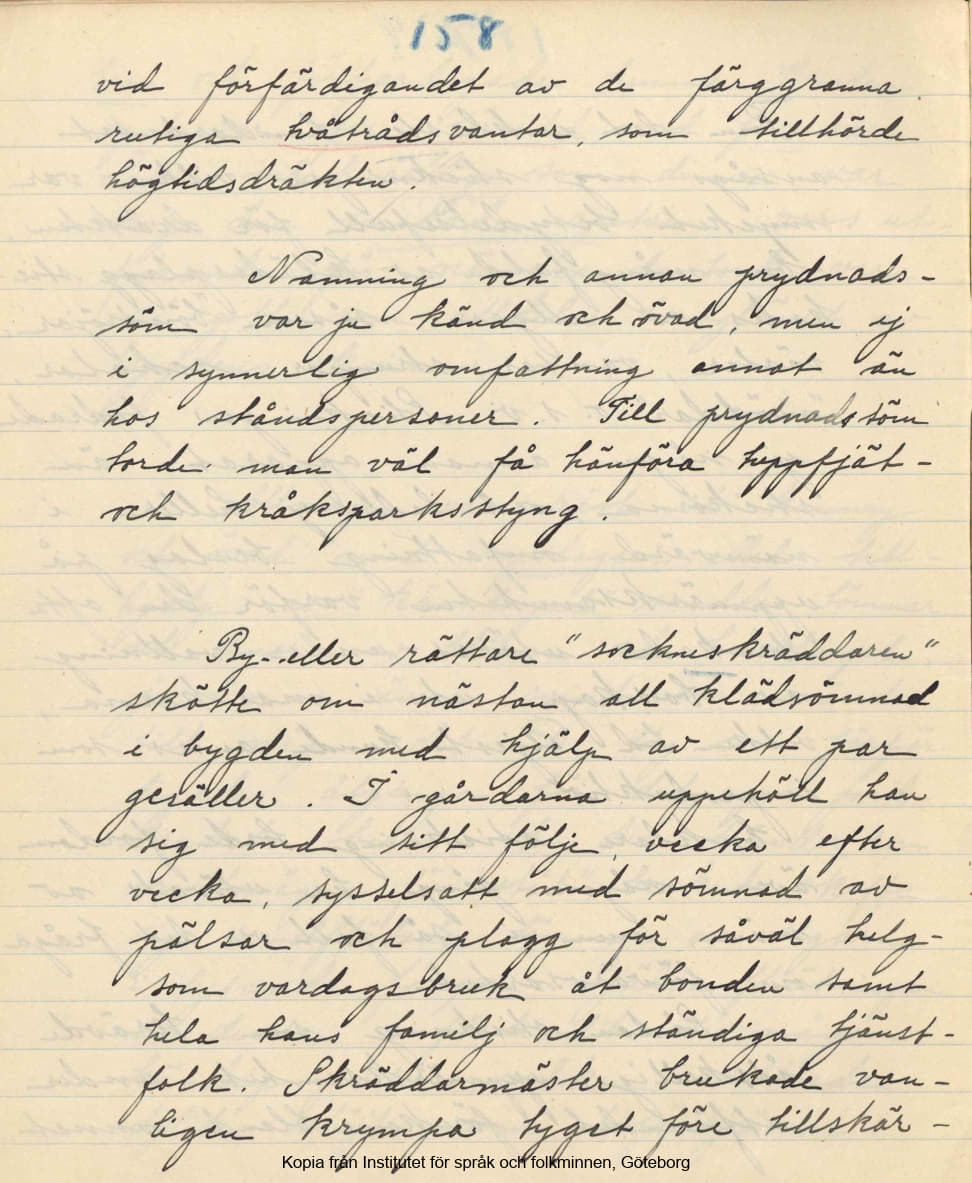 158
vid förfärdigandet av de färggranna
rutiga tvåtrådsvantar, som tillhörde
högtidsdräkten.
Namning och annan prydnads-
söm var ju känd och övad, men ej
i synnerlig omfattning annat än
hos ståndspersoner. Till prydnadssöm
torde man väl få hänföra tuppfjät-
och kråksparksstyng.
By- eller rättare "sockneskräddaren"
skötte om nästan all klädsömnad
i bygden med hjälp av ett par
gesäller. I gårdarna uppehöll han
sig med sitt följe, vecka efter
vecka, sysselsatt med sömnad av
pälsar och plagg för såväl helg-
som vardagsbruk åt bonden samt
hela hans familj och ständiga tjänst-
folk. Skräddarmäster brukade van-
ligen krympa tyget före tillskär-
Kopia från Institutet för språk och folkminnen, Göteborg